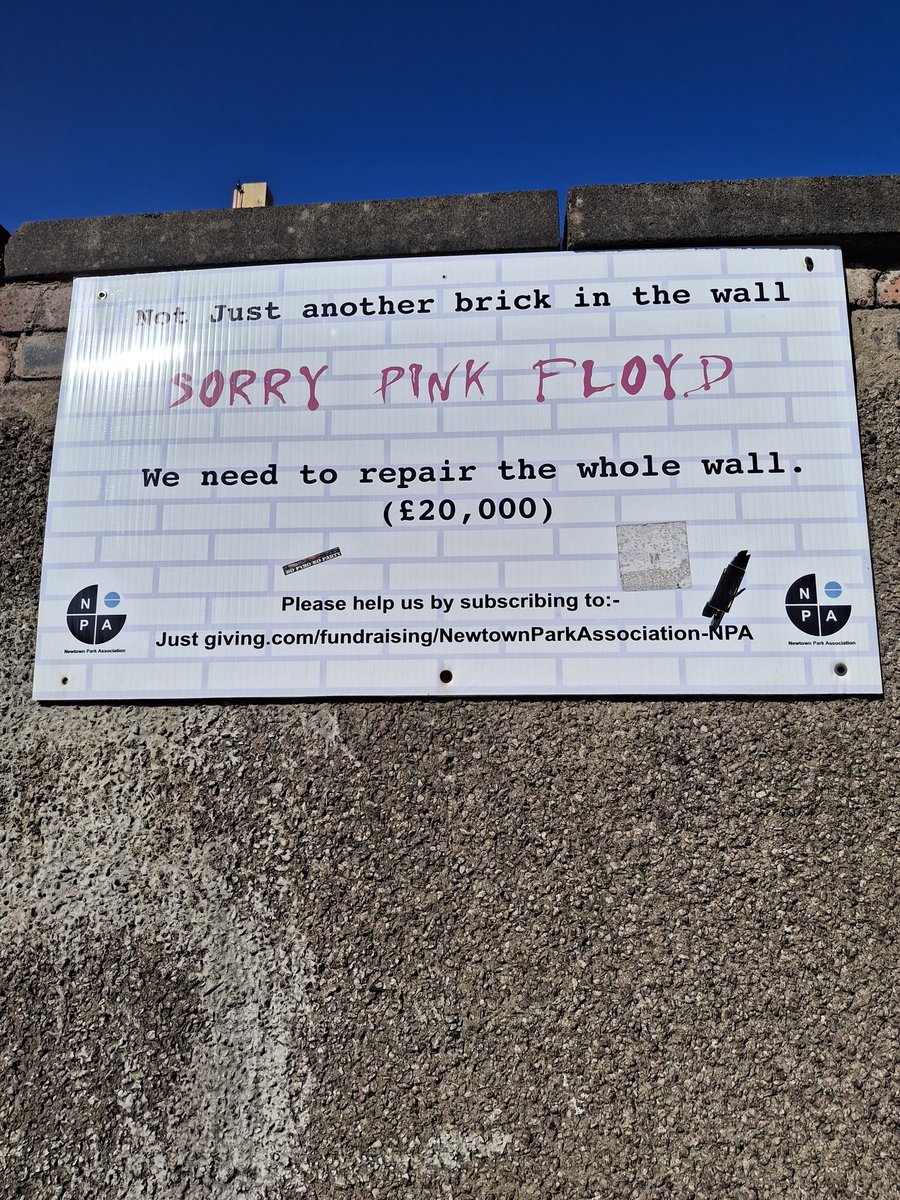 Not Just another brick in the wall
SORRY PINK FLOYD
We need to repair the whole wall.
(£20,000)
NO PYRO NO PARTY
Please help us by subscribing to:-
Just giving.com/fundraising/NewtownParkAssociation-NPA
N
P A
Newtown Park Association
N
P A
Newtown Park Association